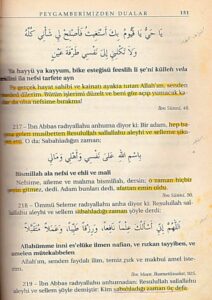 PEYGAMBERİMİZDEN DUALAR 151
يَا حَيُّ يَا قَيُّومُ بِكَ أَسْتَغِيثُ فَأَصْلِحْ لِي شَأْنِي كُلَّهُ
وَلَا تَكِلْنِي إِلَى نَفْسِي طَرْفَةَ عَيْنٍ
Ya hayyü ya kayyum, bike esteğisü feeslih li şe'ni külleh vela
ila nefsi tarfete ayn
Ya gerçek hayat sahibi ve kainatı ayakta tutan Allah'ım, senden
meded dilerim. Bütün işlerimi düzelt ve beni göz açıp yumuncaya ka-
dar da olsa nefsime bırakma!
İbn Sünni, 48.
217 - İbn Abbas radıyallahu anhuma diyor ki: Bir adam, hep ba-
şına gelen musibetlerden Resulullah sallallahu aleyhi ve selleme şikâ-
yet etti. O da: Sabahladığın zaman:
بِسْمِ اللهِ عَلَى نَفْسِي وَأَهْلِي وَمَالِي
Bismillah ala nefsi ve ehli ve mali
Nefsime, aileme ve malıma bismillah, dersin; o zaman hiçbir
şeyin gitmez, dedi. Adam bunları dedi, afattan emin oldu.
İbn Sünni, 50.
218 - Ümmü Seleme radıyallahu anha diyor ki: Resulullah sallal-
lahu aleyhi ve sellem sabahladığı zaman şöyle derdi:
اللَّهُمَّ إِنِّي أَسْأَلُكَ عِلْمًا نَافِعًا، وَرِزْقًا طَيِّبًا، وَعَمَلًا مُتَقَبَّلًا
Allahümme inni es'elüke ilmen nafian, ve rızkan tayyiben, ve
amelen mütekabbelen
Allah'ım, senden faydalı ilim, temiz rızık ve makbul amel iste-
rim.
219 - İbn Abbas radıyallahu anhuma diyor ki: Resulullah sallallahu
aleyhi ve sellem şöyle demiştir: Kim sabahladığı zaman üç defa: